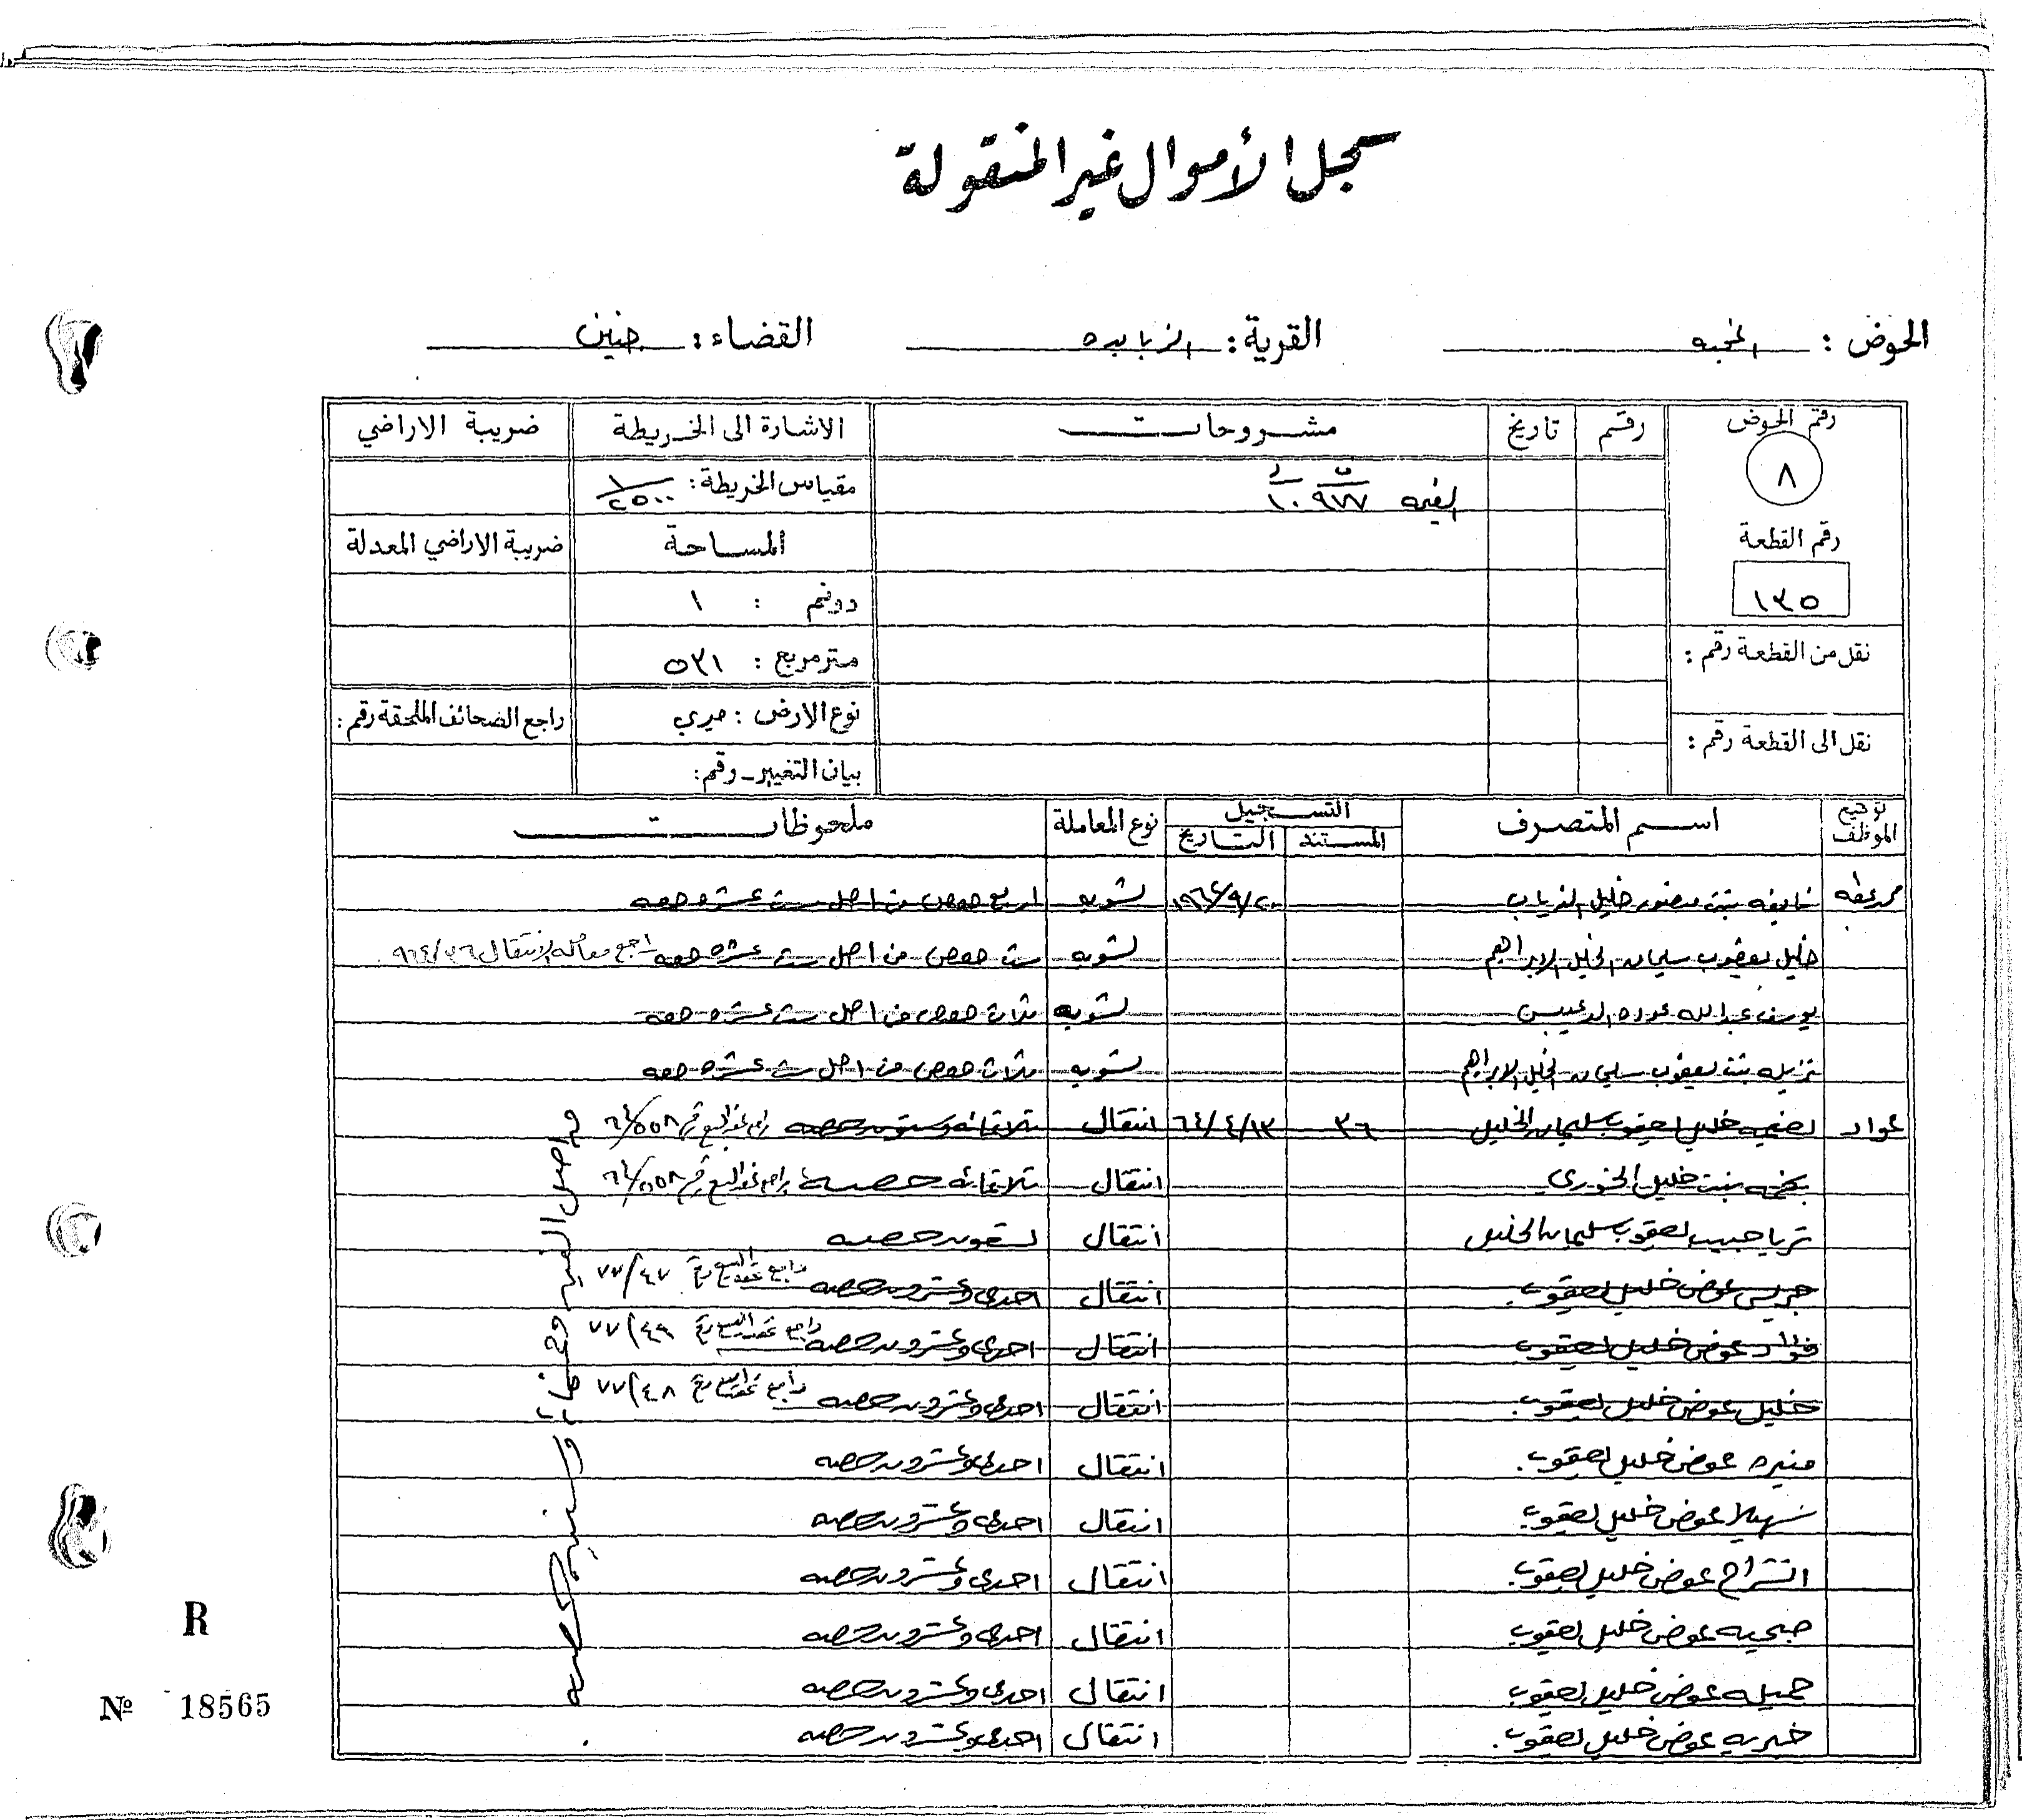 سجل الأموال غير المنقولة
الحوض : القرية : الزبابده القضاء : جنين
رقم الحوض رقم تاريخ مشروحات الاشارة الى الخريطة ضريبة الاراضي
٨ مقياس الخريطة : ١/٢٥٠٠
١٠ ٩٧٧
رقم القطعة المساحة ضريبة الاراضي المعدلة
١٣٥ دونم : ١
نقل من القطعة رقم : متر مربع : ٥٣١
نوع الارض : ميري راجع الصحائف الملحقة رقم :
نقل الى القطعة رقم :
بيان التغيير - رقم :
توقيع الموظف اسم المتصرف التسجيل نوع المعاملة ملحوظات
المستند التاريخ
بنت منصور خليل الذياب تسويه اربع حصص من اصل ست عشره حصه
خليل يعقوب سليمان الخليل الابراهيم تسويه ست حصص من اصل ست عشره حصه راجع معامله الانتقال ٩٦٤/٣٦
يوسف عبدالله عوده تسويه ثلاث حصص من اصل ست عشره حصه
نزيله بنت يعقوب سليمان الخليل الابراهيم تسويه ثلاث حصص من اصل ست عشره حصه
عواد خليل يعقوب سليمان الخليل ٣٦ ٦٤/٤/١٣ انتقال ثلاثمائه وستون حصه راجع عقد البيع رقم ٦٤/٥٥٨
بنت خليل الخوري انتقال ثلاثمائه حصه راجع عقد البيع رقم ٦٤/٥٥٨
ثريا حبيب يعقوب سليمان الخليل انتقال حصه
جريس عوض خليل يعقوب انتقال احدى وعشرون حصه راجع عقد البيع رقم ٧٧/٤٧
فؤاد عوض خليل يعقوب انتقال احدى وعشرون حصه راجع عقد البيع رقم ٧٧/٤٩
خليل عوض خليل يعقوب انتقال احدى وعشرون حصه راجع عقد البيع رقم ٧٧/٤٨
منيره عوض خليل يعقوب . انتقال احدى وعشرون حصه
سهيلا عوض خليل يعقوب انتقال احدى وعشرون حصه
انشراح عوض خليل يعقوب . انتقال احدى وعشرون حصه
صبحيه عوض خليل يعقوب انتقال احدى وعشرون حصه
جميله عوض خليل يعقوب انتقال احدى وعشرون حصه
خيريه عوض خليل يعقوب . انتقال احدى وعشرون حصه
من اصل الفين حصه
R
№ 18565